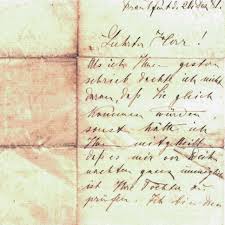 Frankfurt d. 26
Geehrter Herr!
Als ich Ihnen gestern
schrieb dachte ich nicht
daran, daß Sie gleich
kommen würden
sonst hätte ich
Ihnen mitgetheilt
daß es mir vor Weih
nachten ganz unmöglich
ist Ihre Tochter zu
prüfen. Ich bin